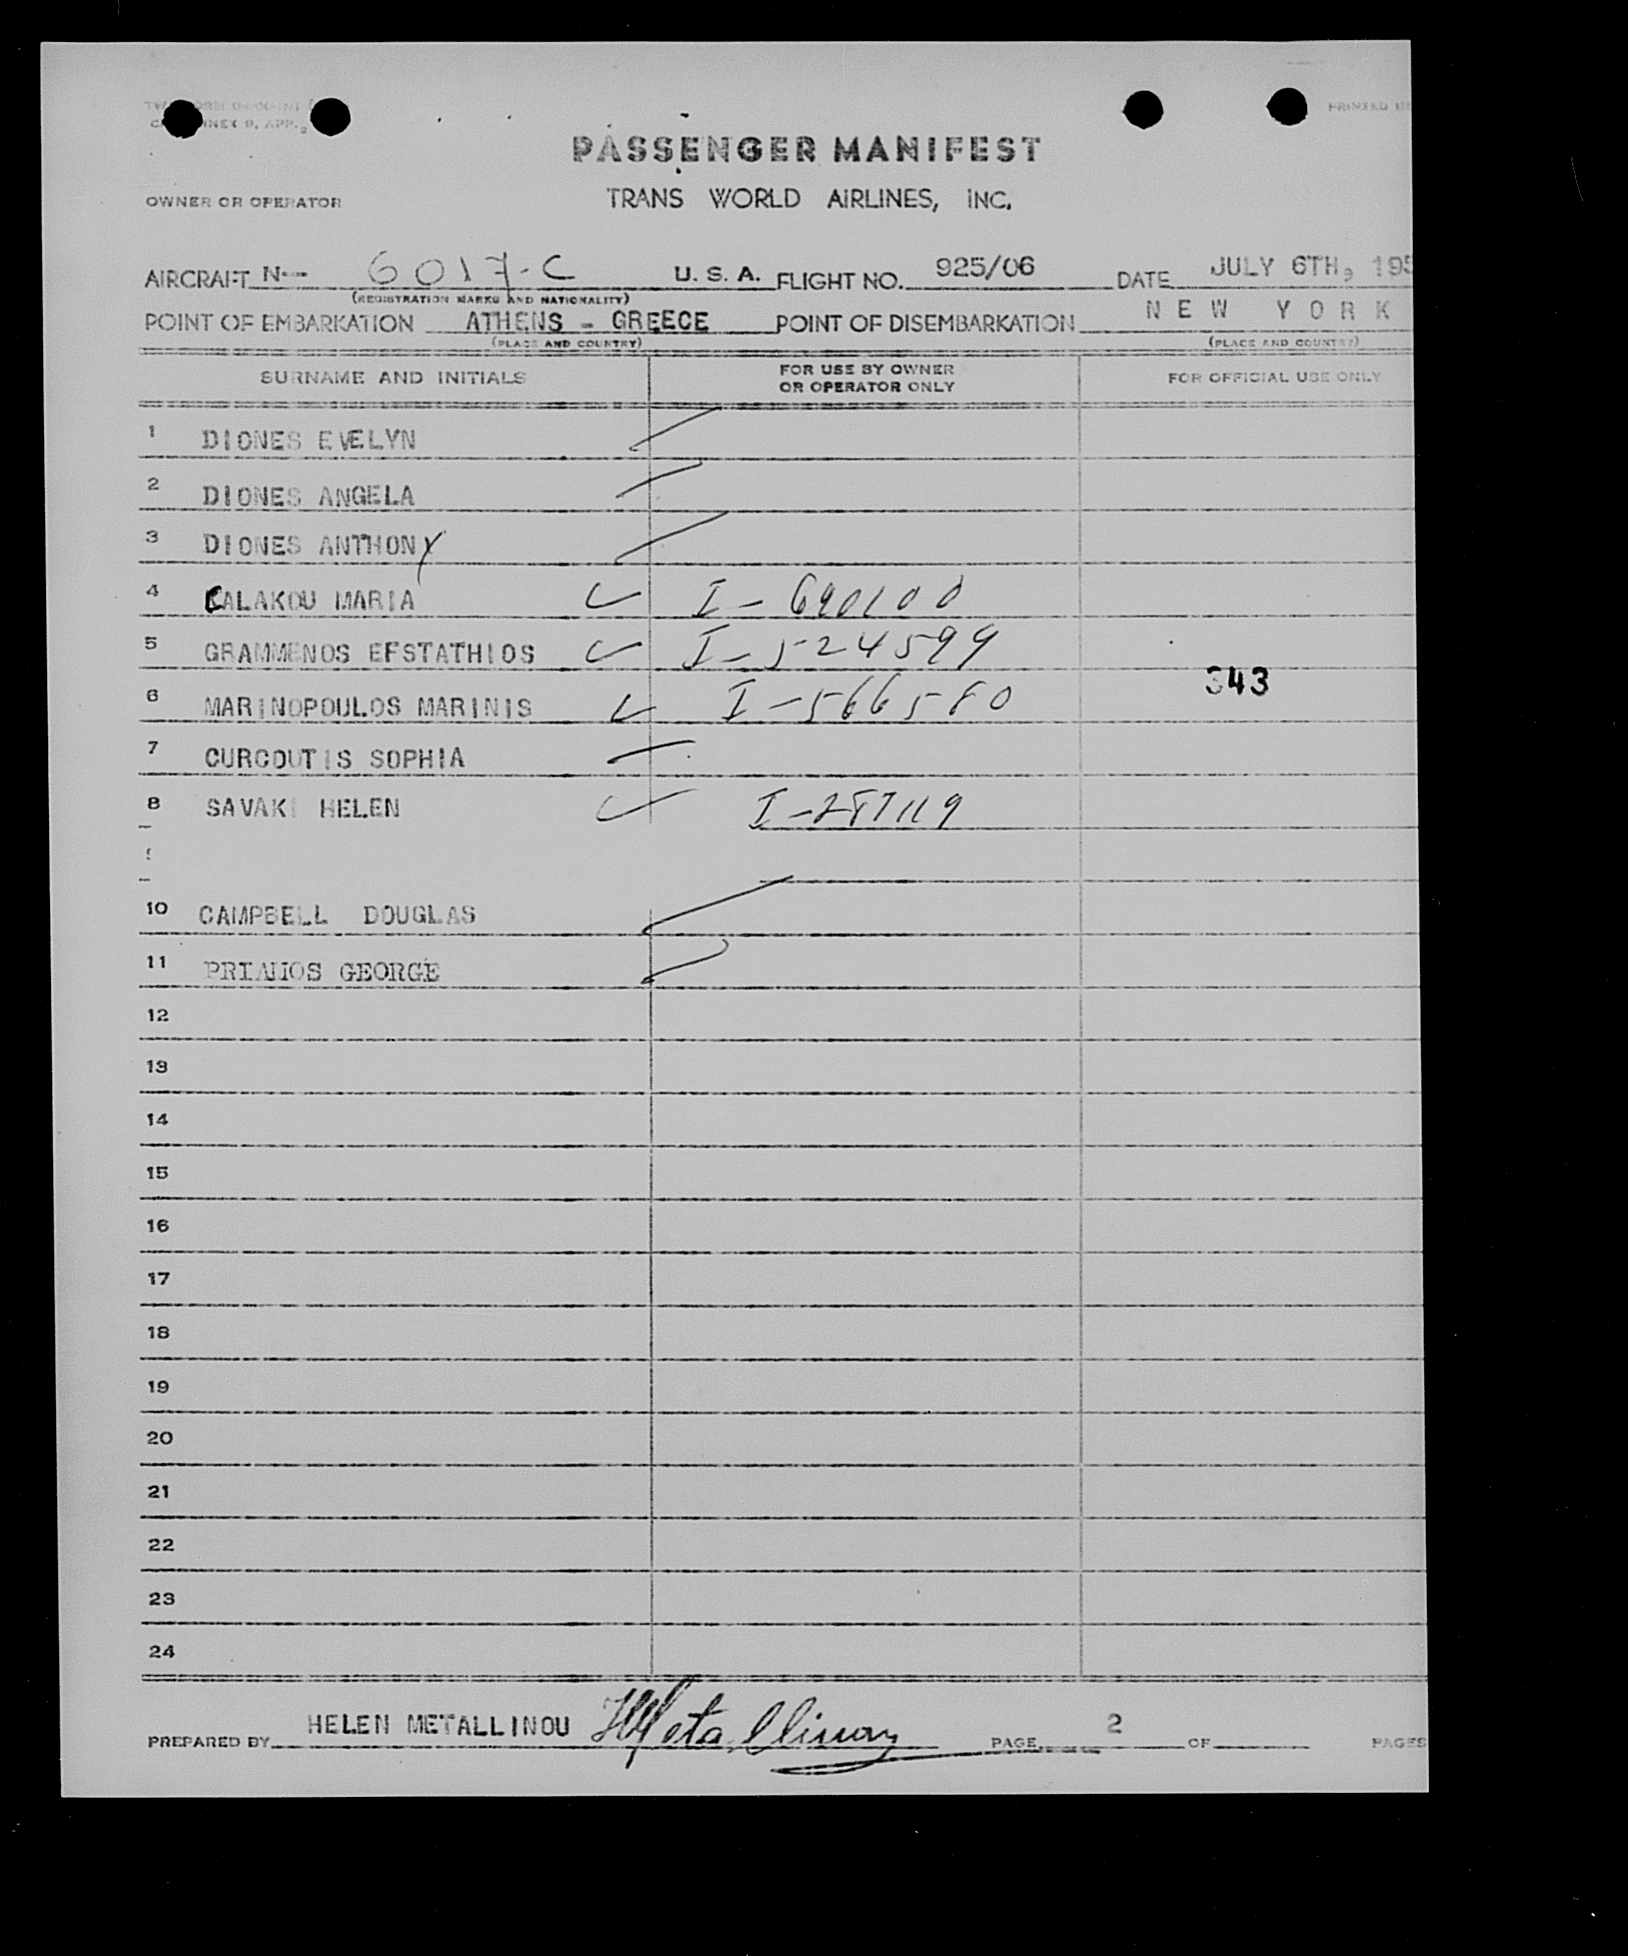 PASSENGER MANIFEST
OWNER OR OPERATOR TRANS WORLD AIRLINES, INC.
AIRCRAFT N-- 6017-C U. S. A. FLIGHT NO. 925/06 DATE JULY 6TH, 195
(REGISTRATION MARKS AND NATIONALITY)
POINT OF EMBARKATION ATHENS - GREECE POINT OF DISEMBARKATION NEW YORK
(PLACE AND COUNTRY) (PLACE AND COUNTRY)
SURNAME AND INITIALS FOR USE BY OWNER OR OPERATOR ONLY FOR OFFICIAL USE ONLY
1 DIONES EVELYN
2 DIONES ANGELA
3 DIONES ANTHONY
4 CALAKOU MARIA I-690100
5 GRAMMENOS EFSTATHIOS I-524599
6 MARINOPOULOS MARINIS I-566580 343
7 CURCOUTIS SOPHIA
8 SAVAKI HELEN I-287119
9
10 CAMPBELL DOUGLAS
11 PRIAMOS GEORGE
12
13
14
15
16
17
18
19
20
21
22
23
24
PREPARED BY HELEN METALLINOU HMetallinou PAGE 2 OF PAGES